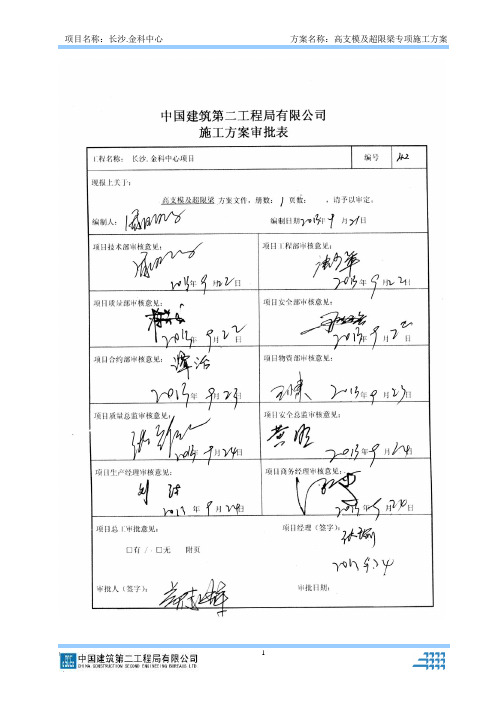 项目名称：长沙.金科中心 方案名称：高支模及超限梁专项施工方案
中国建筑第二工程局有限公司
施工方案审批表
工程名称： 长沙.金科中心项目 编号
现报上关于：
高支模及超限梁 方案文件，册数： 1 页数： ，请予以审定。
编制人： 编制日期2013年9月21日
项目技术部审核意见： 项目工程部审核意见：
2013年9月22日 2013年9月22日
项目质量部审核意见： 项目安全部审核意见：
2013年9月22 2013年9月22日
项目合约部审核意见： 项目物资部审核意见：
2013年9月23日 2013年9月23日
项目质量总监审核意见： 项目安全总监审核意见：
黄明
2013年9月24日 2013年9月24日
项目生产经理审核意见： 项目商务经理审核意见：
2013年9月24日 2013年9月24日
项目总工审批意见： 项目经理（签字）：
□有 / □无 附页
2013.9.24
审批人（签字）： 审批日期：
1
中国建筑第二工程局有限公司
CHINA CONSTRUCTION SECOND ENGINEERING BUREAU LTD.